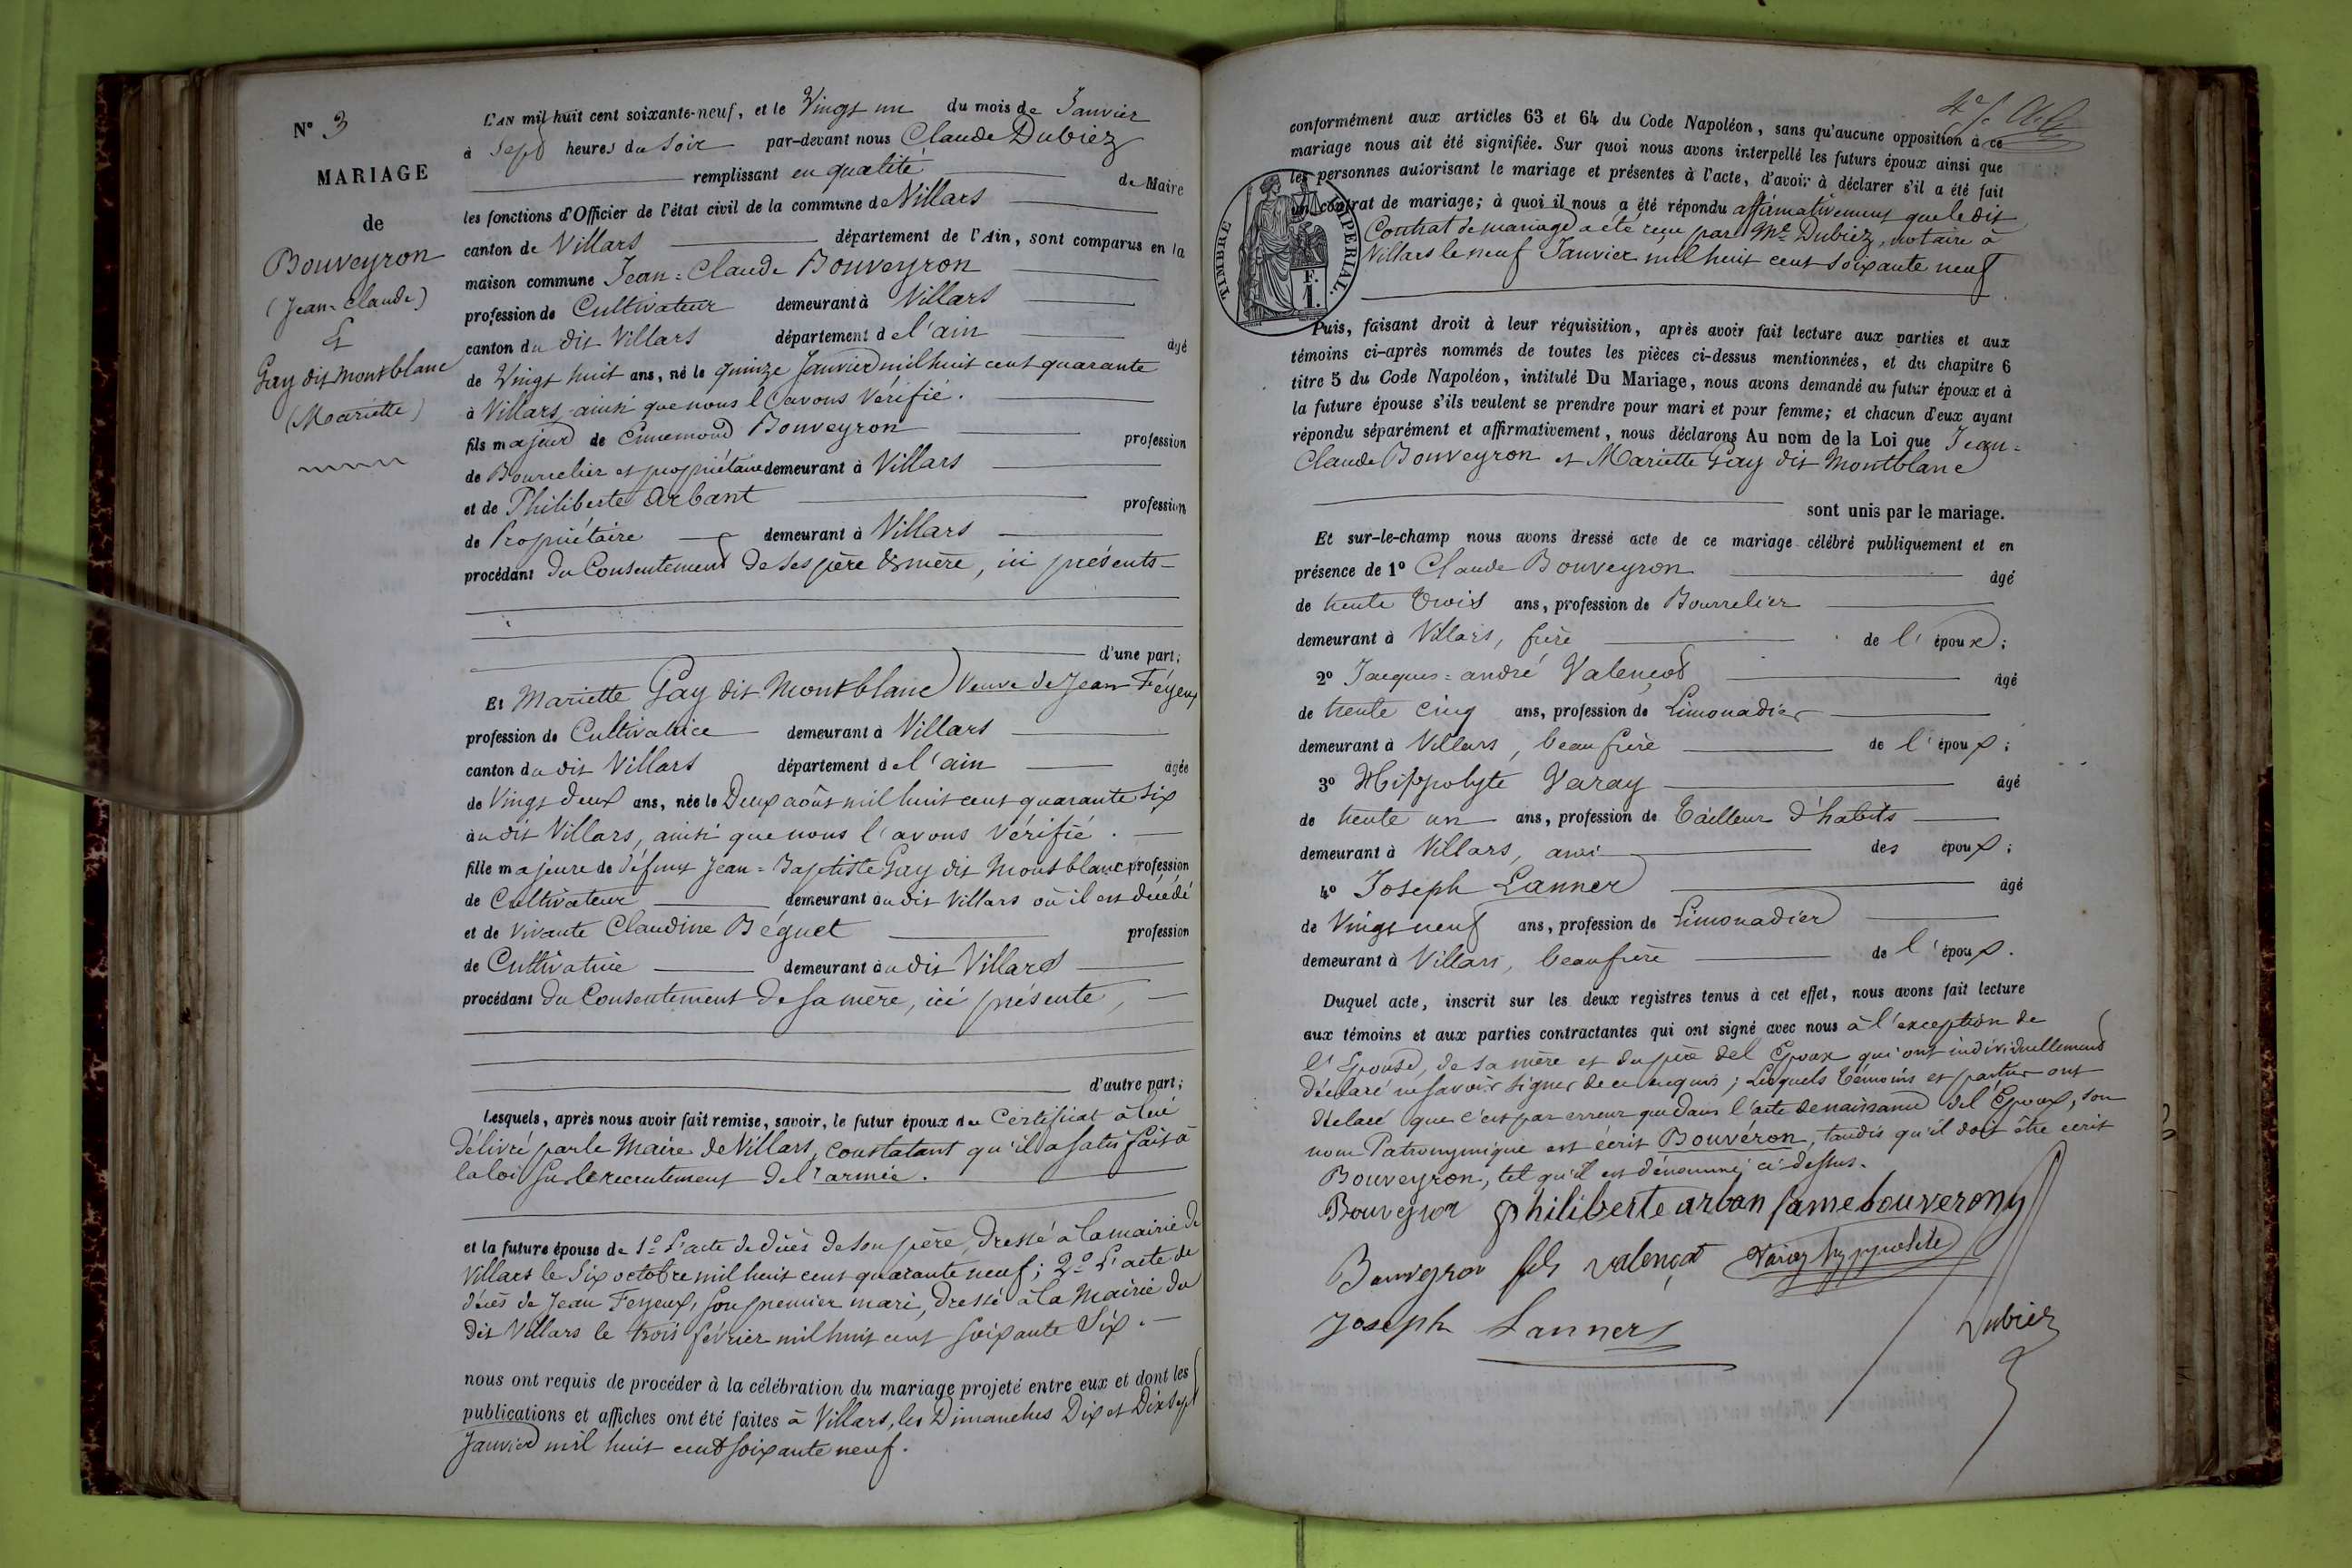 N° 3
MARIAGE
de
Bouveyron
(Jean-Claude)
&
Gay dit Montblanc
(Mariette)
L'AN mil huit cent soixante-neuf, et le Vingt un du mois de Janvier
à Sept heures du Soir par-devant nous Claude Dubiez
remplissant en qualité de Maire
les fonctions d'Officier de l'état civil de la commune de Villars
canton de Villars département de l'Ain, sont comparus en la
maison commune Jean=Claude Bouveyron
profession de Cultivateur demeurant à Villars
canton du dit Villars département de l'ain âgé
de Vingt huit ans, né le quinze Janvier mil huit cent quarante
à Villars ainsi que nous l'avons Vérifié.
fils majeur de Ennemond Bouveyron profession
de Bourrelier et propriétaire demeurant à Villars
et de Philiberte Arbant profession
de Propriétaire demeurant à Villars
procédant du Consentement de ses père & mère, ici présents
d'une part;
Et Mariette Gay dit Montblanc Veuve de Jean Féyeux
profession de Cultivatrice demeurant à Villars
canton du dit Villars département de l'ain âgée
de Vingt deux ans, née le Deux août mil huit cent quarante Six
au dit Villars, ainsi que nous l'avons Vérifié.
fille majeure de défunt Jean=Baptiste Gay dit Montblanc profession
de Cultivateur demeurant au dit Villars où il est décédé
et de Vivante Claudine Béguet profession
de Cultivatrice demeurant au dit Villars
procédant du Consentement de sa mère, ici présente,
d'autre part;
Lesquels, après nous avoir fait remise, savoir, le futur époux du Certificat à lui
délivré par le Maire de Villars, constatant qu'il a satisfait à
la loi sur le recrutement de l'armée.
et la future épouse de 1° L'acte de décès de son père, dressé à la mairie de
Villars le Six octobre mil huit cent quarante neuf; 2° L'acte de
décès de Jean Feyeux, son premier mari, dressé à la Mairie du
dit Villars le trois février mil huit cent soixante Six.
nous ont requis de procéder à la célébration du mariage projeté entre eux et dont les
publications et affiches ont été faites à Villars, les Dimanches Dix et Dix Sept
Janvier mil huit cent soixante neuf.
conformément aux articles 63 et 64 du Code Napoléon, sans qu'aucune opposition à ce
mariage nous ait été signifiée. Sur quoi nous avons interpellé les futurs époux ainsi que
les personnes autorisant le mariage et présentes à l'acte, d'avoir à déclarer s'il a été fait
un contrat de mariage; à quoi il nous a été répondu affirmativement que le dit
Contrat de mariage a été reçu par Me Dubiez, notaire à
Villars le neuf Janvier mil huit cent soixante neuf
TIMBRE IMPERIAL.
F.
1.
Puis, faisant droit à leur réquisition, après avoir fait lecture aux parties et aux
témoins ci-après nommés de toutes les pièces ci-dessus mentionnées, et du chapitre 6
titre 5 du Code Napoléon, intitulé Du Mariage, nous avons demandé au futur époux et à
la future épouse s'ils veulent se prendre pour mari et pour femme; et chacun d'eux ayant
répondu séparément et affirmativement, nous déclarons Au nom de la Loi que Jean=
Claude Bouveyron et Mariette Gay dit Montblanc
sont unis par le mariage.
Et sur-le-champ nous avons dressé acte de ce mariage célébré publiquement et en
présence de 1° Claude Bouveyron âgé
de trente trois ans, profession de Bourrelier
demeurant à Villars, frère de l'époux;
2° Jacques=andré Valençot âgé
de trente Cinq ans, profession de Limonadier
demeurant à Villars, beaufrère de l'époux;
3° Hippolyte Varay âgé
de trente un ans, profession de tailleur d'habits
demeurant à Villars, ami des époux;
4° Joseph Lanner âgé
de Vingt neuf ans, profession de Limonadier
demeurant à Villars, beaufrère de l'époux.
Duquel acte, inscrit sur les deux registres tenus à cet effet, nous avons fait lecture
aux témoins et aux parties contractantes qui ont signé avec nous à l'exception de
l'Epouse, de sa mère et du père de l'Epoux qui ont individuellement
déclaré ne savoir signer de ce requis; Lesquels témoins et parties ont
déclaré que c'est par erreur que dans l'acte de naissance de l'Epoux, son
nom Patronymique est écrit Bouvéron, tandis qu'il doit être écrit
Bouveyron, tel qu'il est dénommé ci-dessus.
Bouveyron philiberte arban fame bouverony
Bouveyron fils valençot Varay hyppolite
Joseph Lanner
Dubiez